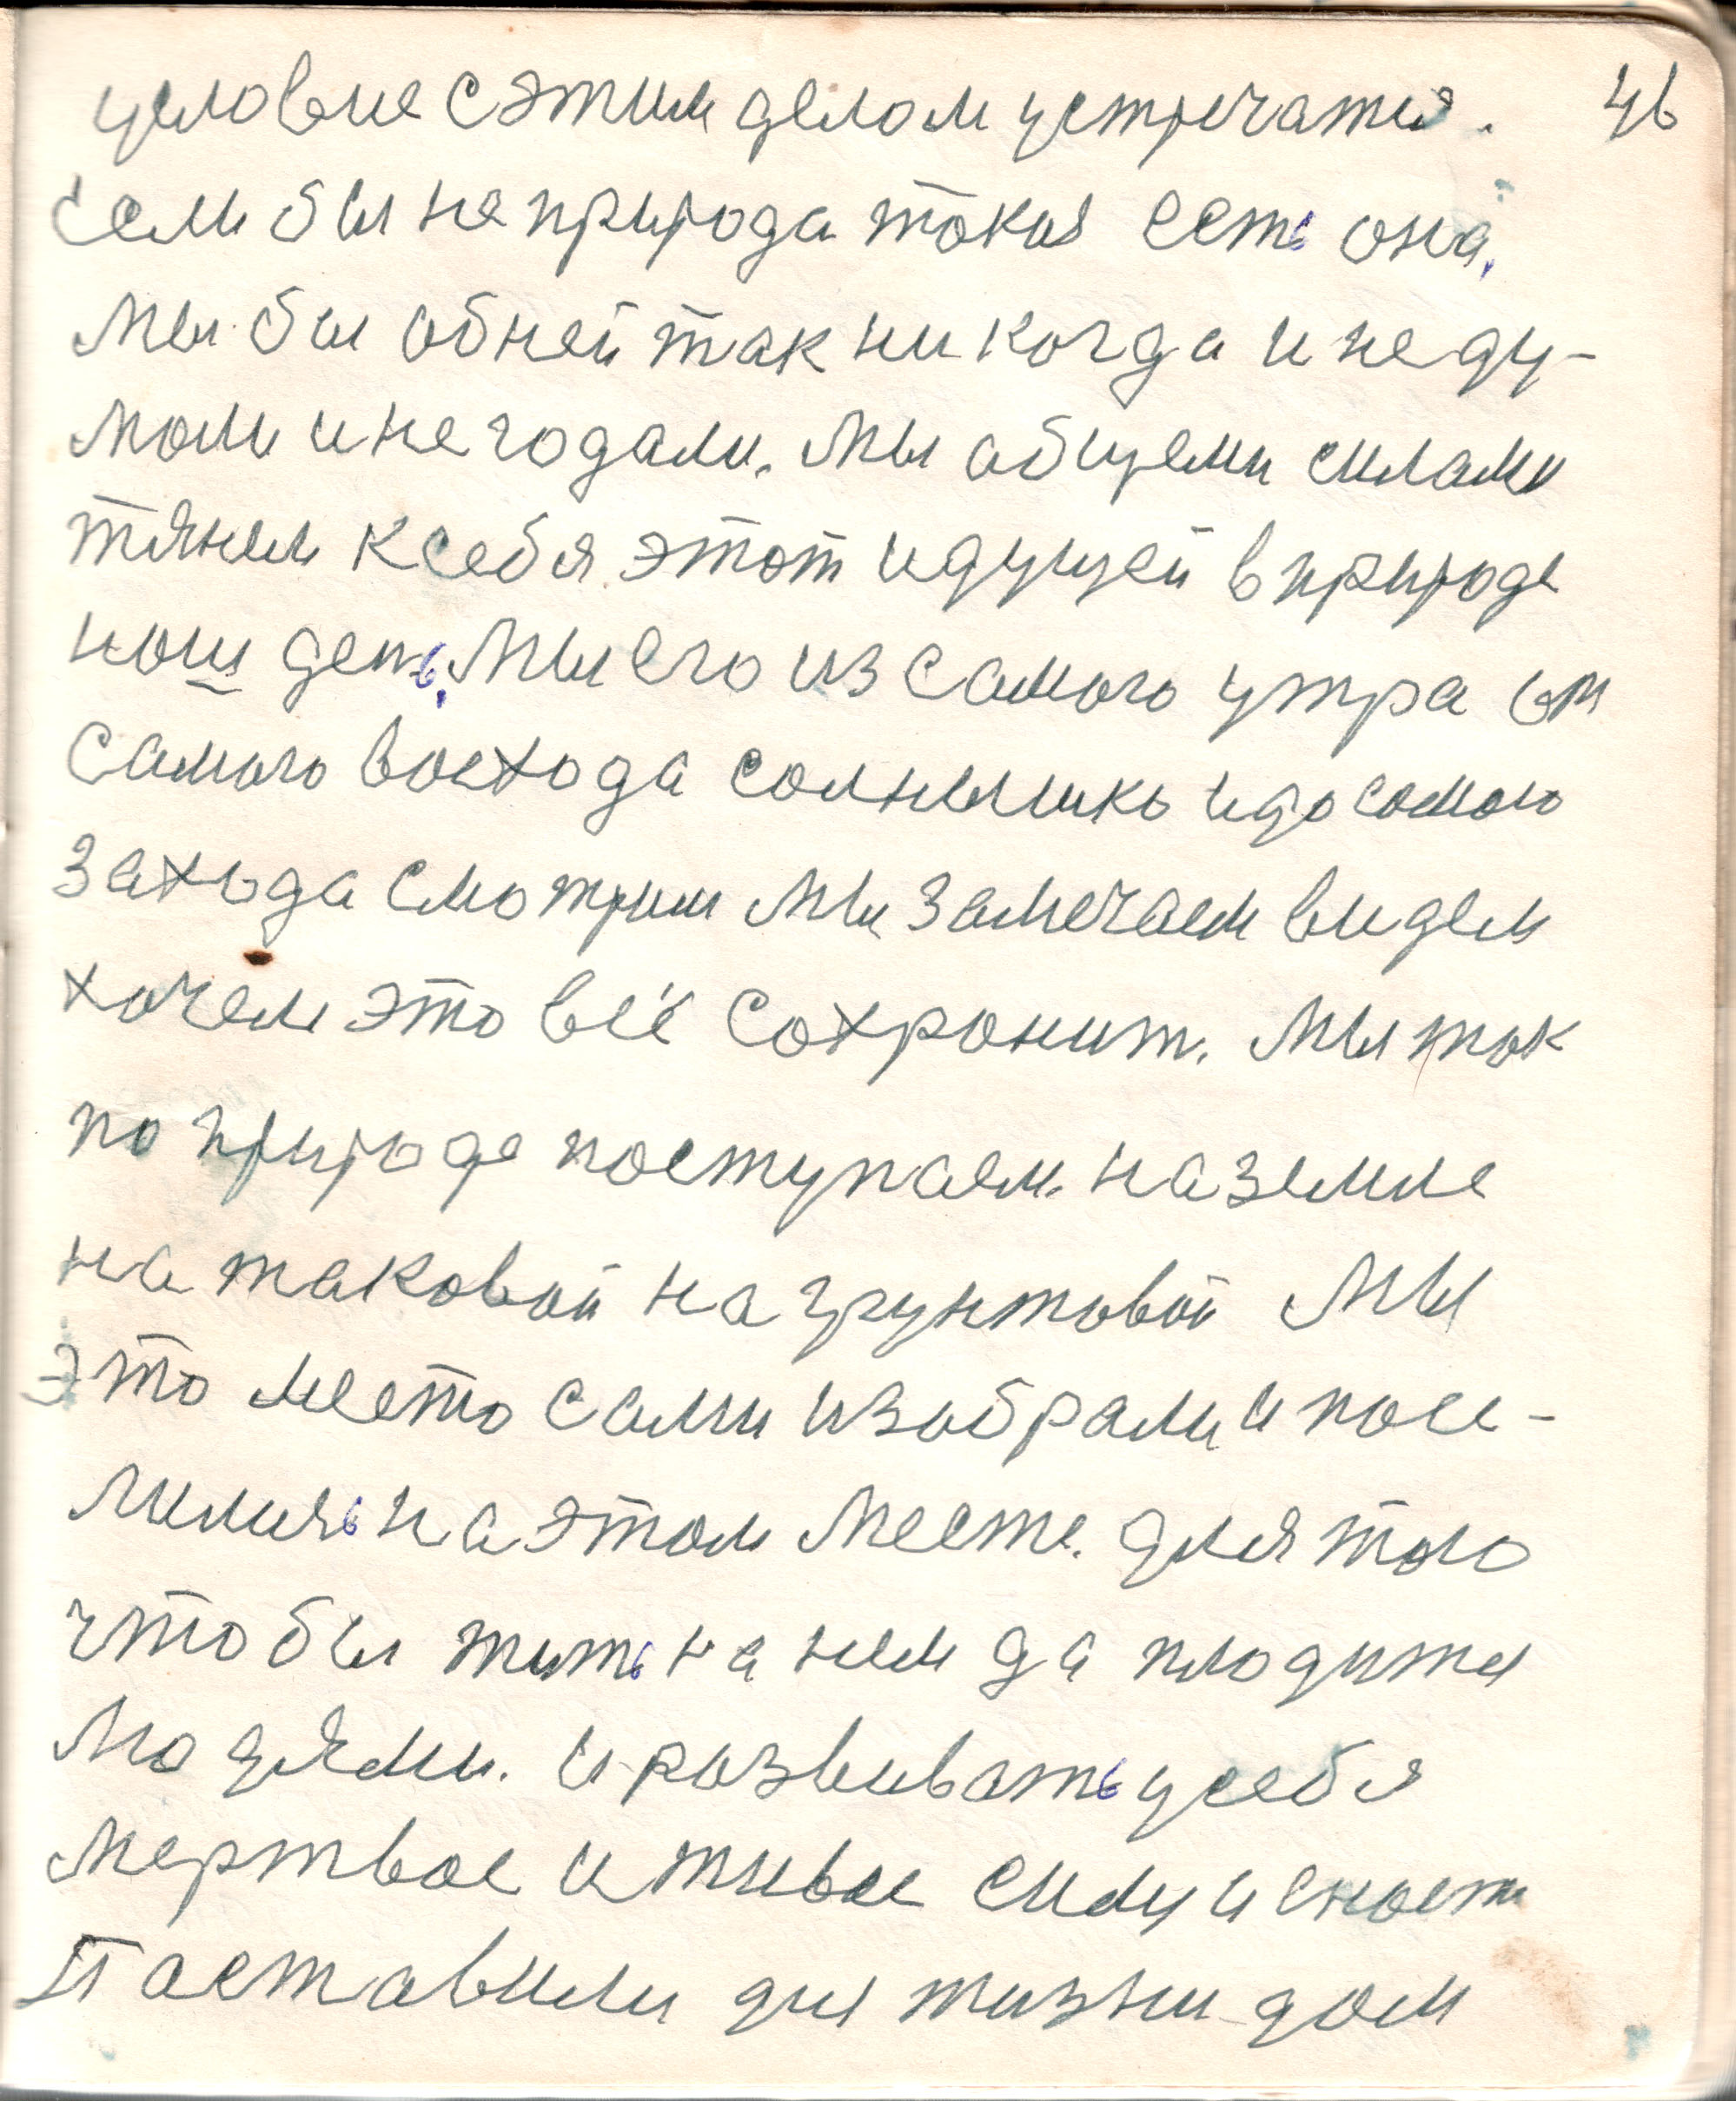 условие с этим делом устречатся. 46
Если бы не природа токая есть она,
мы бы об ней так никогда и не ду-
моли и не годали. Мы общеми силами
тянем к себя этот идущей в природе
нош день. Мы его из самого утра от
самого востода солнышко и до самого
захода смотрим мы замечаем видем
хочем это всё сохронит. Мы так
по природе поступаем. на земле
на таковой на грунтовой Мы
это место сами изобрали и посе-
лились на этом месте. для того
чтобы жить на нем да плодится
людями. и розвивать у себя
мертвое и живое силу и сност
Поставили для жизни дом